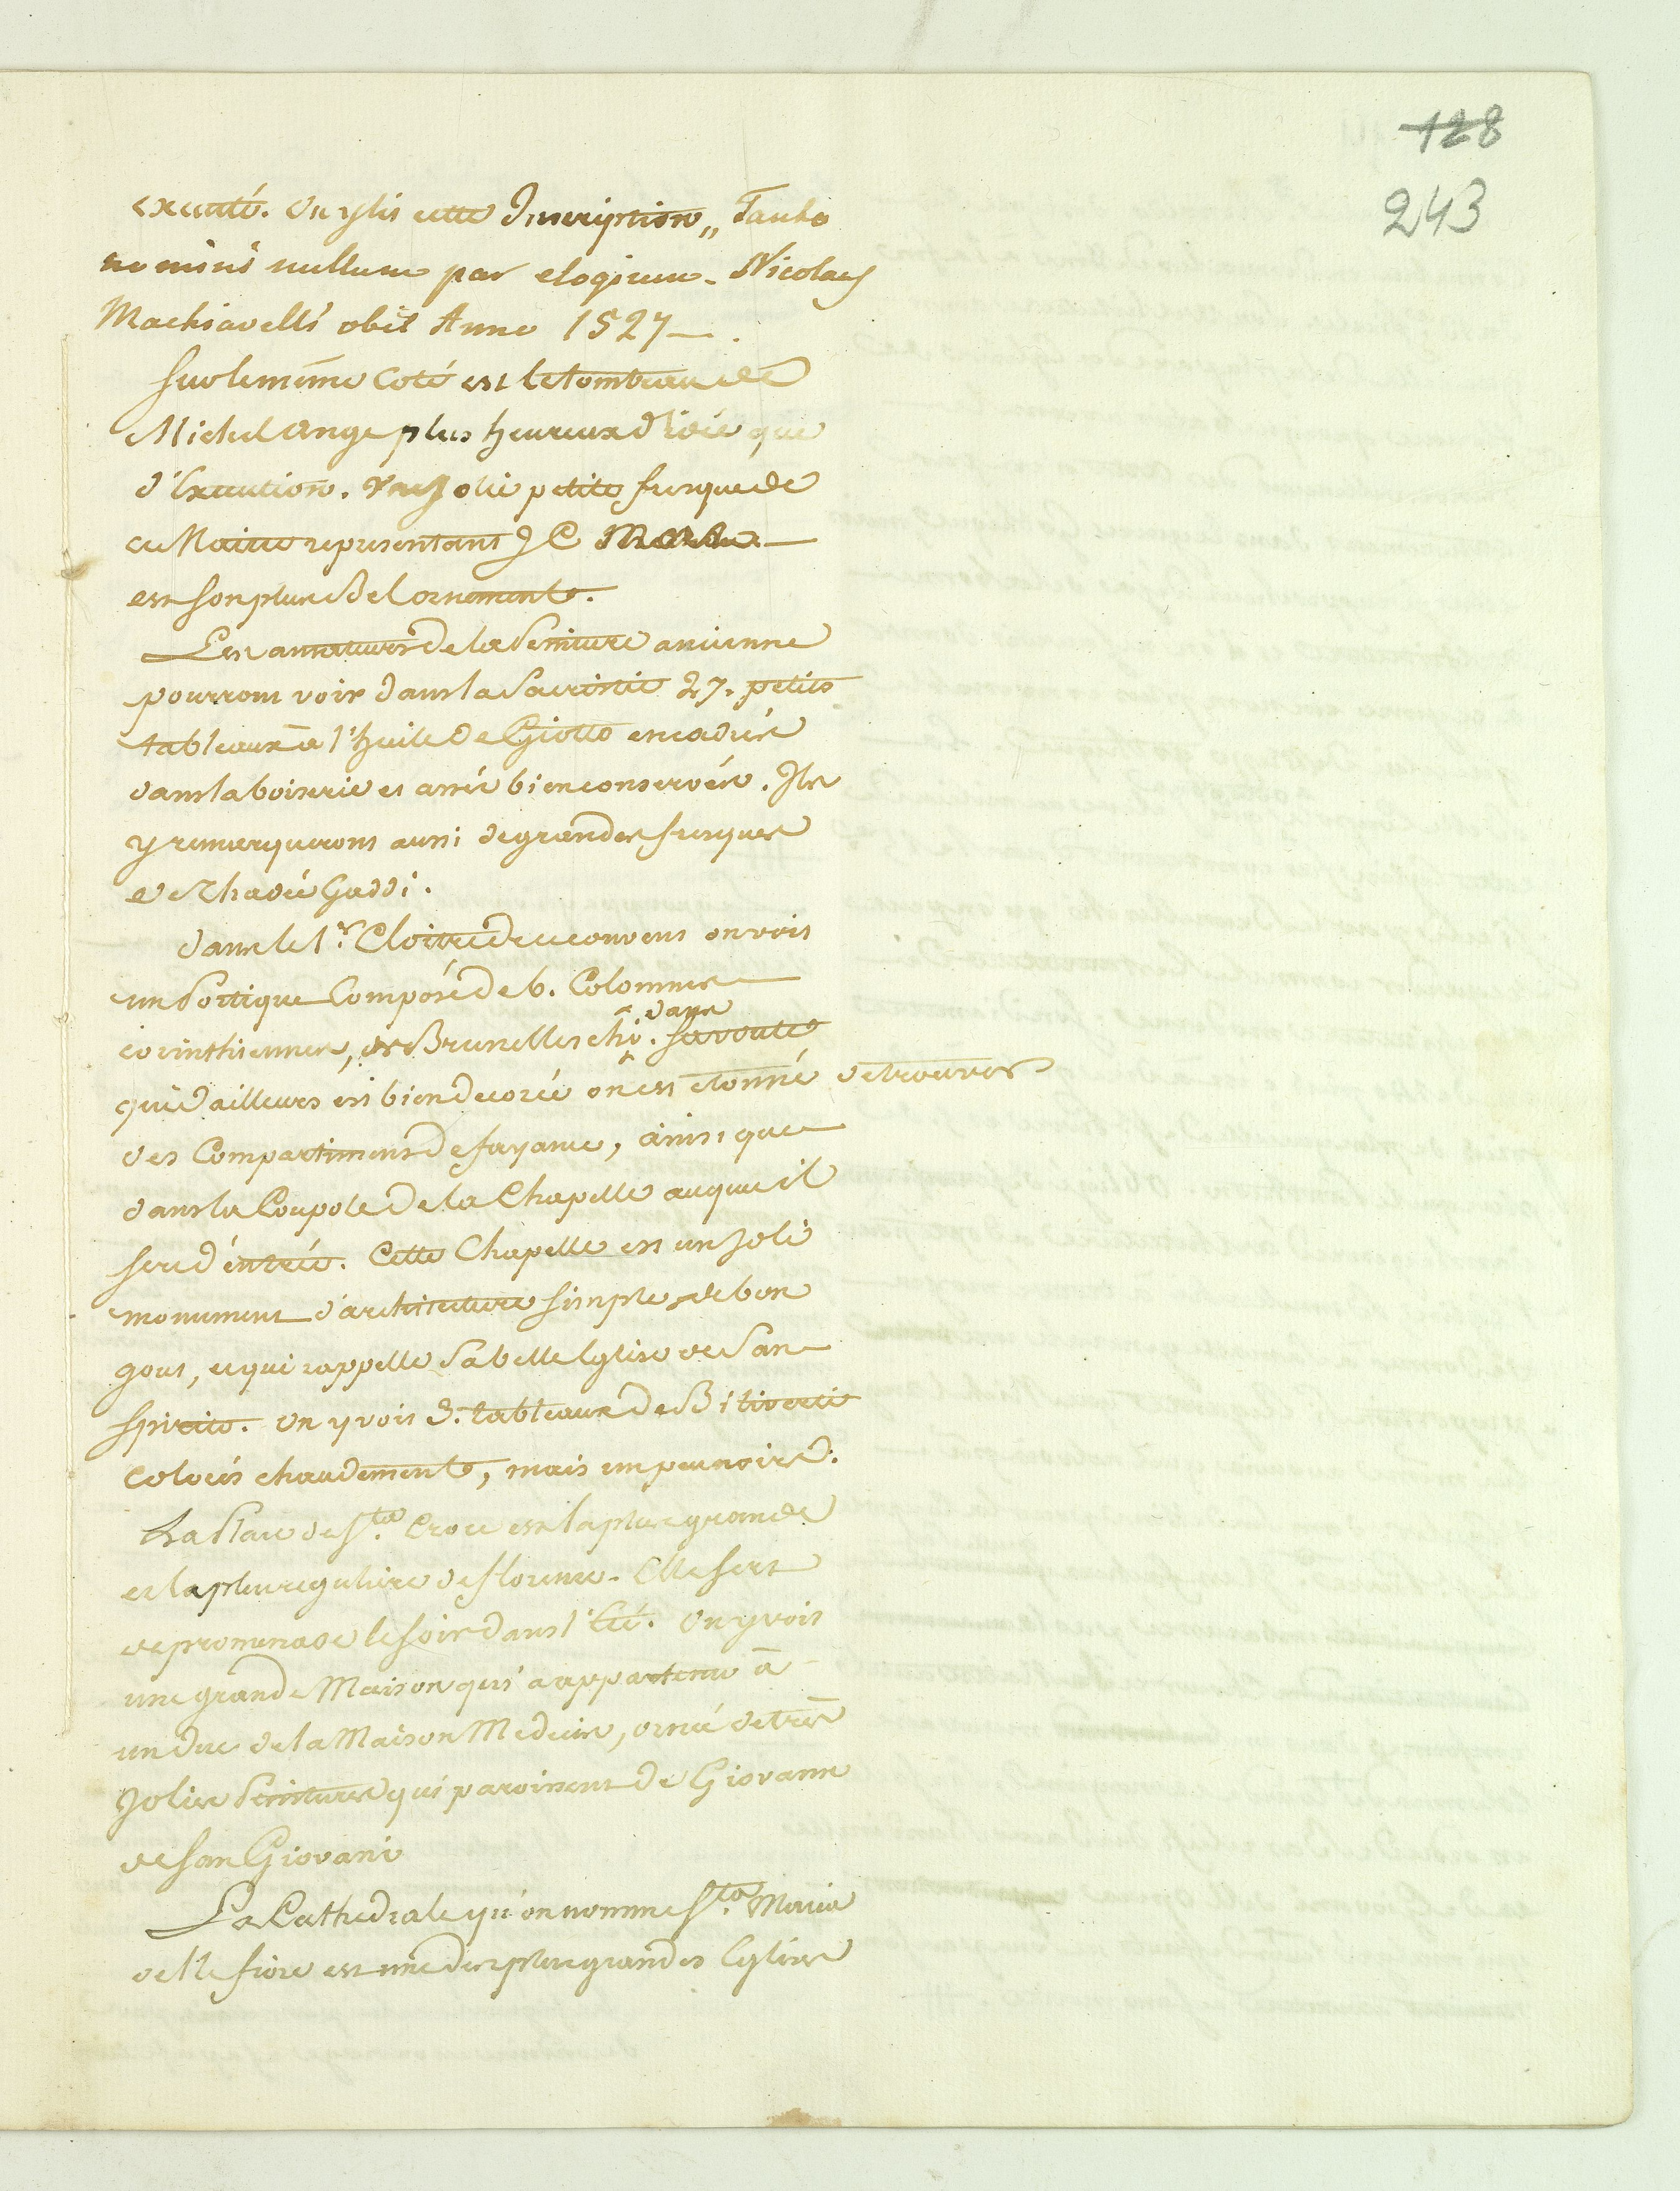 128
243
executé. On y lis cette Inscription „ Tanto
nomini nullum par elogium. Nicolaus
Machiavelli obit Anno 1527.
Sur le même Coté est le tombeau de
Michel Ange plus heureux d'idée que
d'Execution. Une Jolie petite fresque de
ce Maitre representant J C Mort
est son plus bel ornement.
Les amateurs de la Peinture ancienne
pourront voir dans la Sacristie 27. petits
tableaux à l'huile de Giotto encadrés
dans la boiserie et assés bien conservés. Ils
y remarqueront aussi de grandes fresques
de Thadée Gaddi.
dans le 1er. Cloitre de ce couvent on voit
un Portique Composé de 6. Colonnes
corinthiennes, de Brunelleschi. dans sa voute
qui d'ailleurs est bien decorée on est etonné de trouver
des Compartimens de fayance, ainsi que
dans la Coupole de la Chapelle auquel il
sert d'entrée. Cette Chapelle est un Joli
monument d'architecture simple, de bon
gout, et qui rappelle la belle Eglise de San
Spirito. On y voit 3. tableaux de Biliverti
coloriés chaudement, mais un peu noirs.
La Place de Sta. Croce est la plus grande
et la plus reguliere de florence. Elle sert
de promenade le soir dans l'Eté. On y voit
une grande Maison qui a appartenu à
un duc de la Maison Medicis, ornée de très
Jolies Peintures qui paroissent de Giovann
de San Giovani
La Cathedrale qu'on nomme Sta. Maria
del fiore est une des plus grandes Eglises